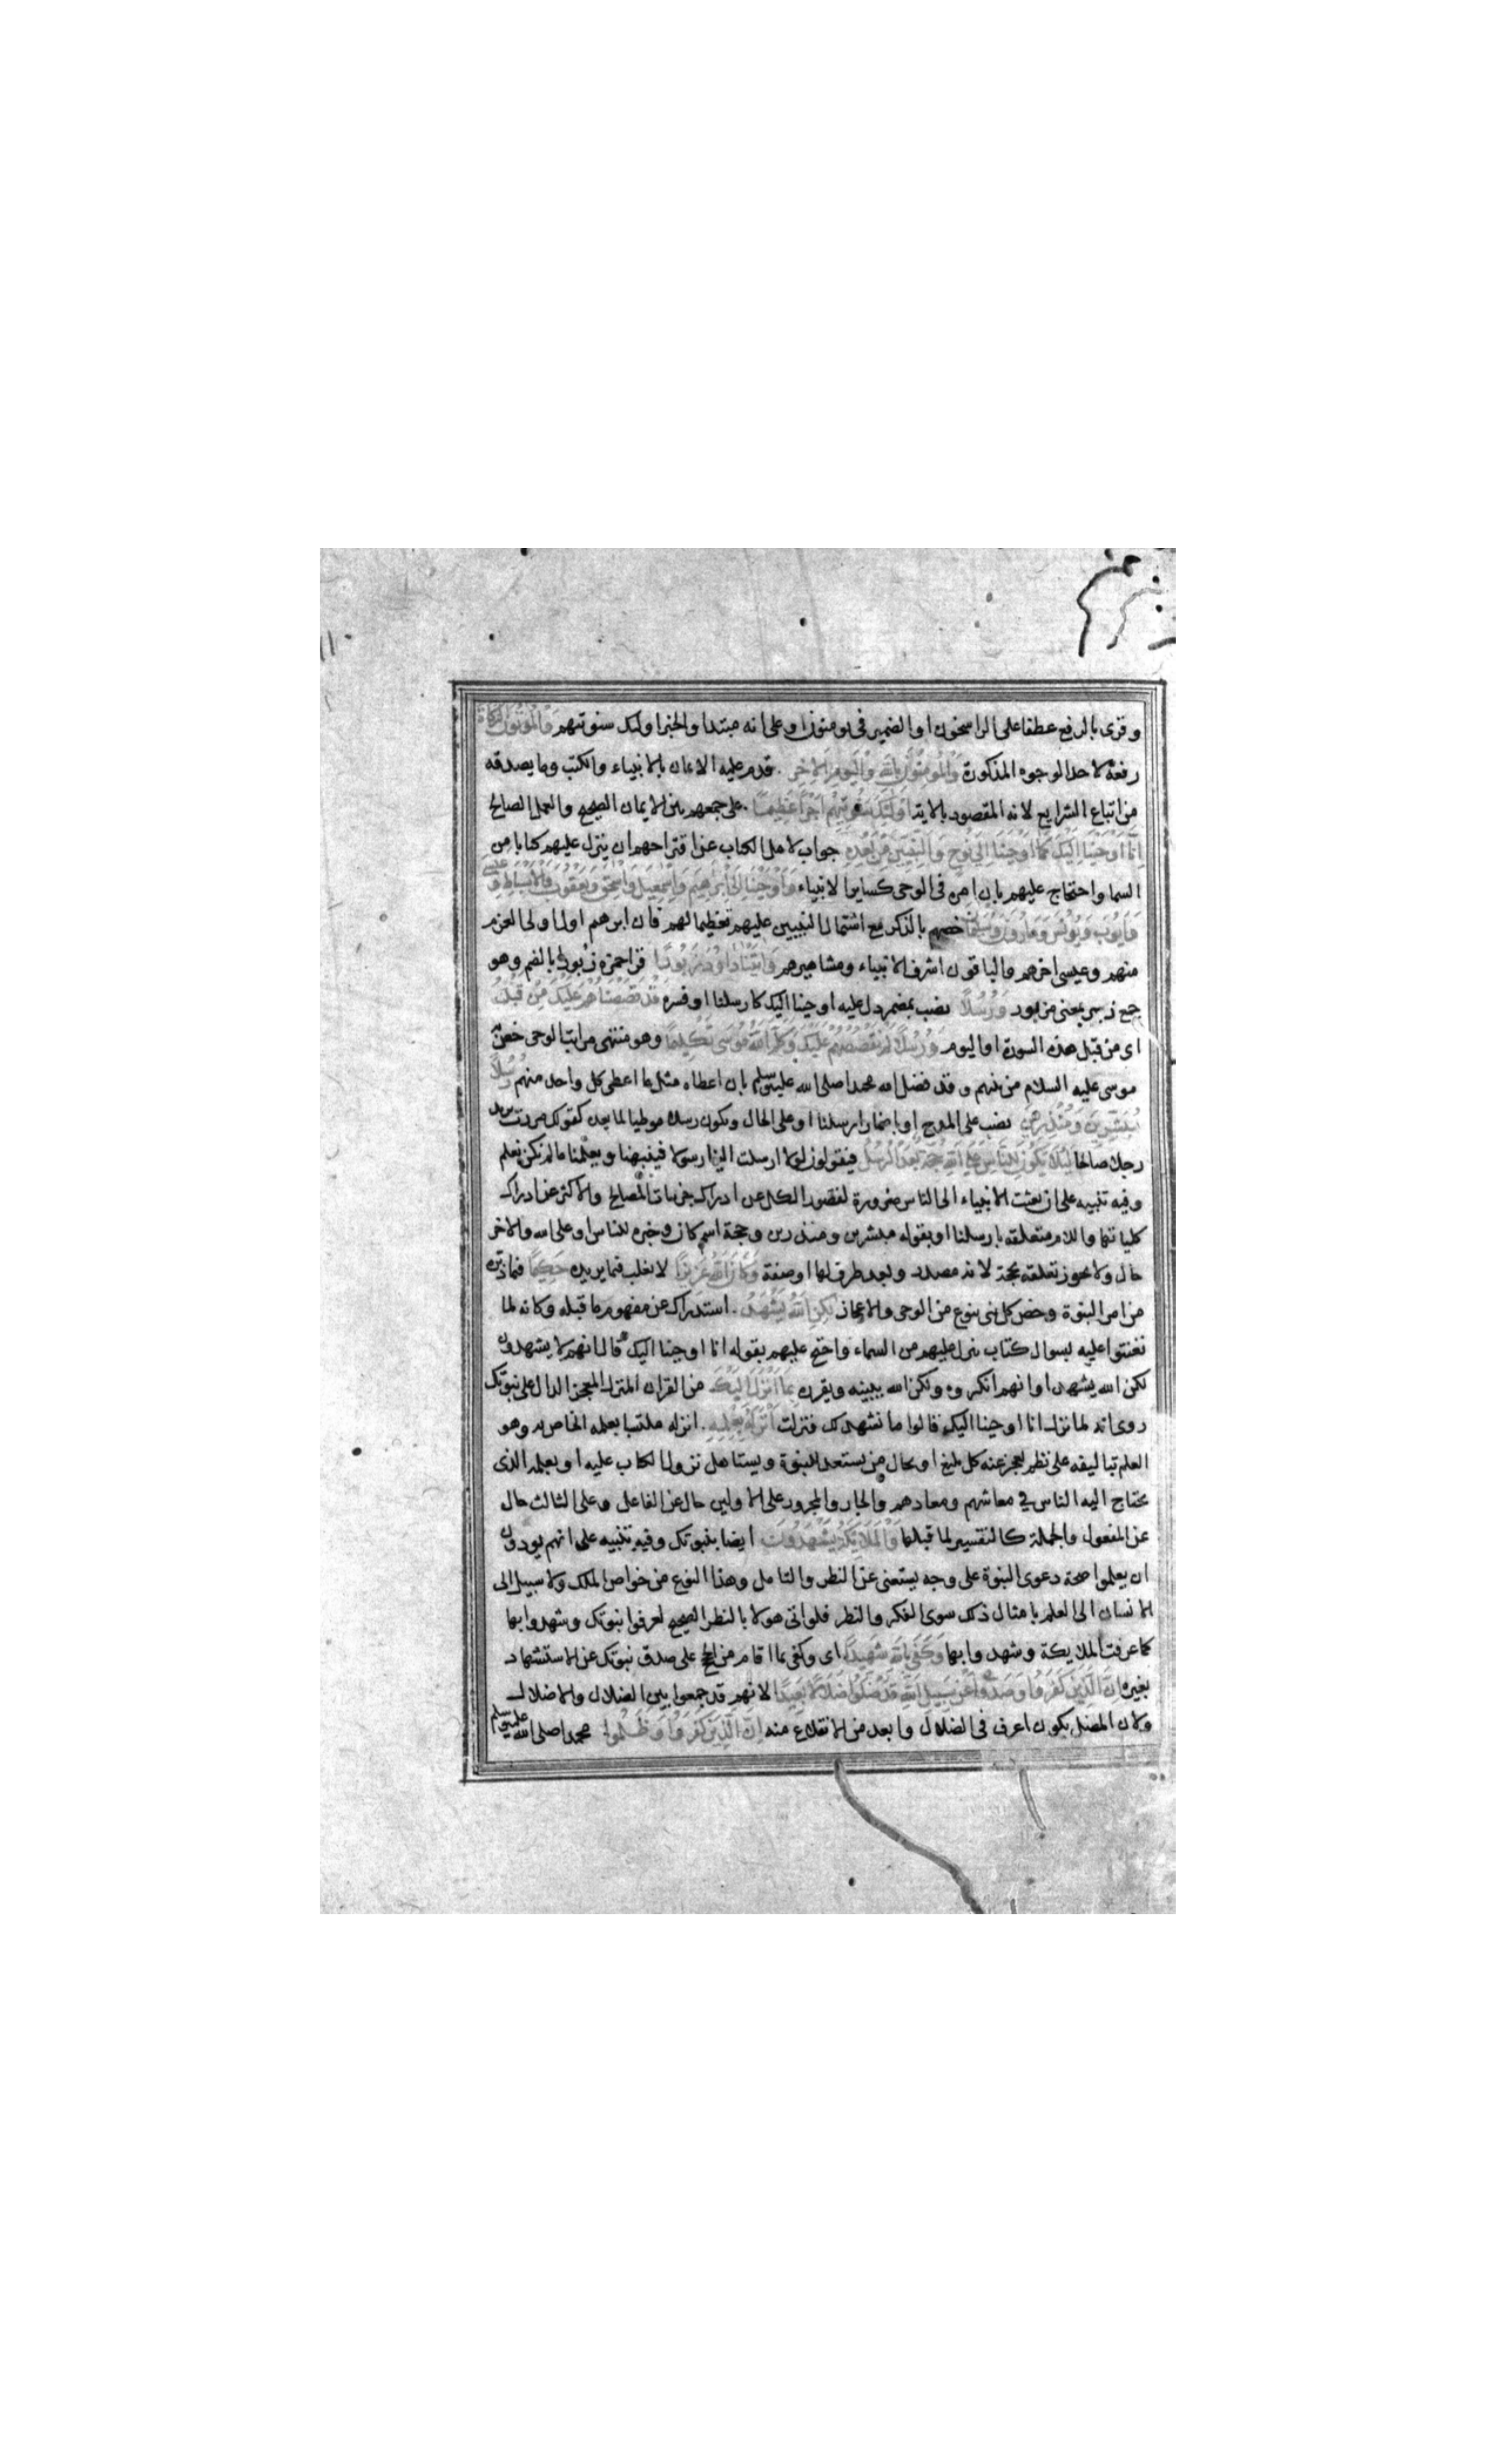 وقرى بالرفع عطفا على الراسخون او الضمير فى يومنون او على انه مبتدا والخبر اوليك سنوتيهم والمؤتون الزكاة
رفعه لاحد الوجوه المذكورة والمؤمنون بالله واليوم الاخر . قدم عليه الايمان بالانبياء والكتب وما يصدقه
من اتباع الشرايع لانه المقصود بالاية اولئك سنؤتيهم اجرا عظيما . على جمعهم بين الايمان الصحيح والعمل الصالح
انا اوحينا اليك كما اوحينا الى نوح والنبيين من بعده جواب لاهل الكتاب عن اقتراحهم ان ينزل عليهم كتابا من
السما واحتجاج عليهم بان امره فى الوحى كساير الانبياء واوحينا الى ابرهيم واسمعيل واسحق ويعقوب والاسباط وعيسى
وايوب ويونس وهارون وسليمان خصهم بالذكر مع اشتمال النبيين عليهم تعظيما لهم فان ابرهم اول اولى العزم
منهم وعيسى اخرهم والباقون اشرف الانبياء ومشاهيرهم واتينا داود زبورا قرا حمزه زبورا بالضم وهو
جمع زبر بمعنى مزبور ورسلا نصب بمضمر دل عليه اوحينا اليك كارسلنا او فسره قد قصصناهم عليك من قبل
اى من قبل هذه السورة او اليوم ورسلا لم نقصصهم عليك وكلم الله موسى تكليما وهو منتهى مراتب الوحى خص به
موسى عليه السلام من بينهم وقد فضل الله محمدا صلى الله عليه وسلم بان اعطاه مثل ما اعطى كل واحد منهم رسلا
مبشرين ومنذرين نصب على المدح او باضمار ارسلنا او على الحال ويكون رسلا موطيا لما بعده كقولك مررت بزيد
رجلا صالحا لئلا يكون للناس على الله حجة بعد الرسل فيقولوا لولا ارسلت الينا رسولا فينبهنا ويعلمنا ما لم نكن نعلم
وفيه تنبيه على ان بعثت الانبياء الى الناس ضرورة لقصور الكل عن ادراك جزييات المصالح والاكثر عن ادراك
كلياتها واللام متعلقه بارسلنا او بقوله مبشرين ومنذرين وحجة اسم كان وخبره للناس او على الله والاخر
حال ولا يجوز تعلقه بحجة لانه مصدر وبعد ظرف لها او صفة وكان الله عزيزا لا يغلب فيما يريده حكيما فيما دبره
من امر النبوة وخص كل نبى بنوع من الوحى والاعجاز لكن الله يشهد . استدراك عن مفهوم ما قبله وكانه لما
تعنتوا عليه بسوال كتاب ينزل عليهم من السماء واحتج عليهم بقوله انا اوحينا اليك قال انهم لا يشهدون
لكن الله يشهد او انهم انكروه ولكن الله يبينه ويقرره بما انزل اليك من القران المنزل المعجز الدال على نبوتك
روى انه لما نزل انا اوحينا اليك قالوا ما نشهد لك فنزلت انزله بعلمه . انزله ملتبسا بعلمه الخاص به وهو
العلم بتاليفه على نظم يعجز عنه كل بليغ او بحال من يستعد للنبوة ويستاهل نزول الكتاب عليه او بعلمه الذى
يحتاج اليه الناس فى معاشهم ومعادهم والجار والمجرور على الاولين حال عن الفاعل وعلى الثالث حال
عن المفعول والجملة كالتفسير لما قبلها والملائكة يشهدون ايضا بنبوتك وفيه تنبيه على انهم يودون
ان يعلموا صحة دعوى النبوة على وجه يستغنى عن النظر والتامل وهذا النوع من خواص الملك ولا سبيل الى
الانسان الى العلم بامثال ذلك سوى الفكر والنظر فلو اتى هولا بالنظر الصحيح لعرفوا نبوتك وشهدوا بها
كما عرفت الملايكة وشهدوا بها وكفى بالله شهيدا اى وكفى بما اقام من الحجج على صدق نبوتك عن الاستشهاد
بغيره ان الذين كفروا وصدوا عن سبيل الله قد ضلوا ضلالا بعيدا لانهم قد جمعوا بين الضلال والاضلال
ولان المضل يكون اعرف فى الضلال وابعد من الانقلاع منه ان الذين كفروا وظلموا محمدا صلى الله عليه وسلم